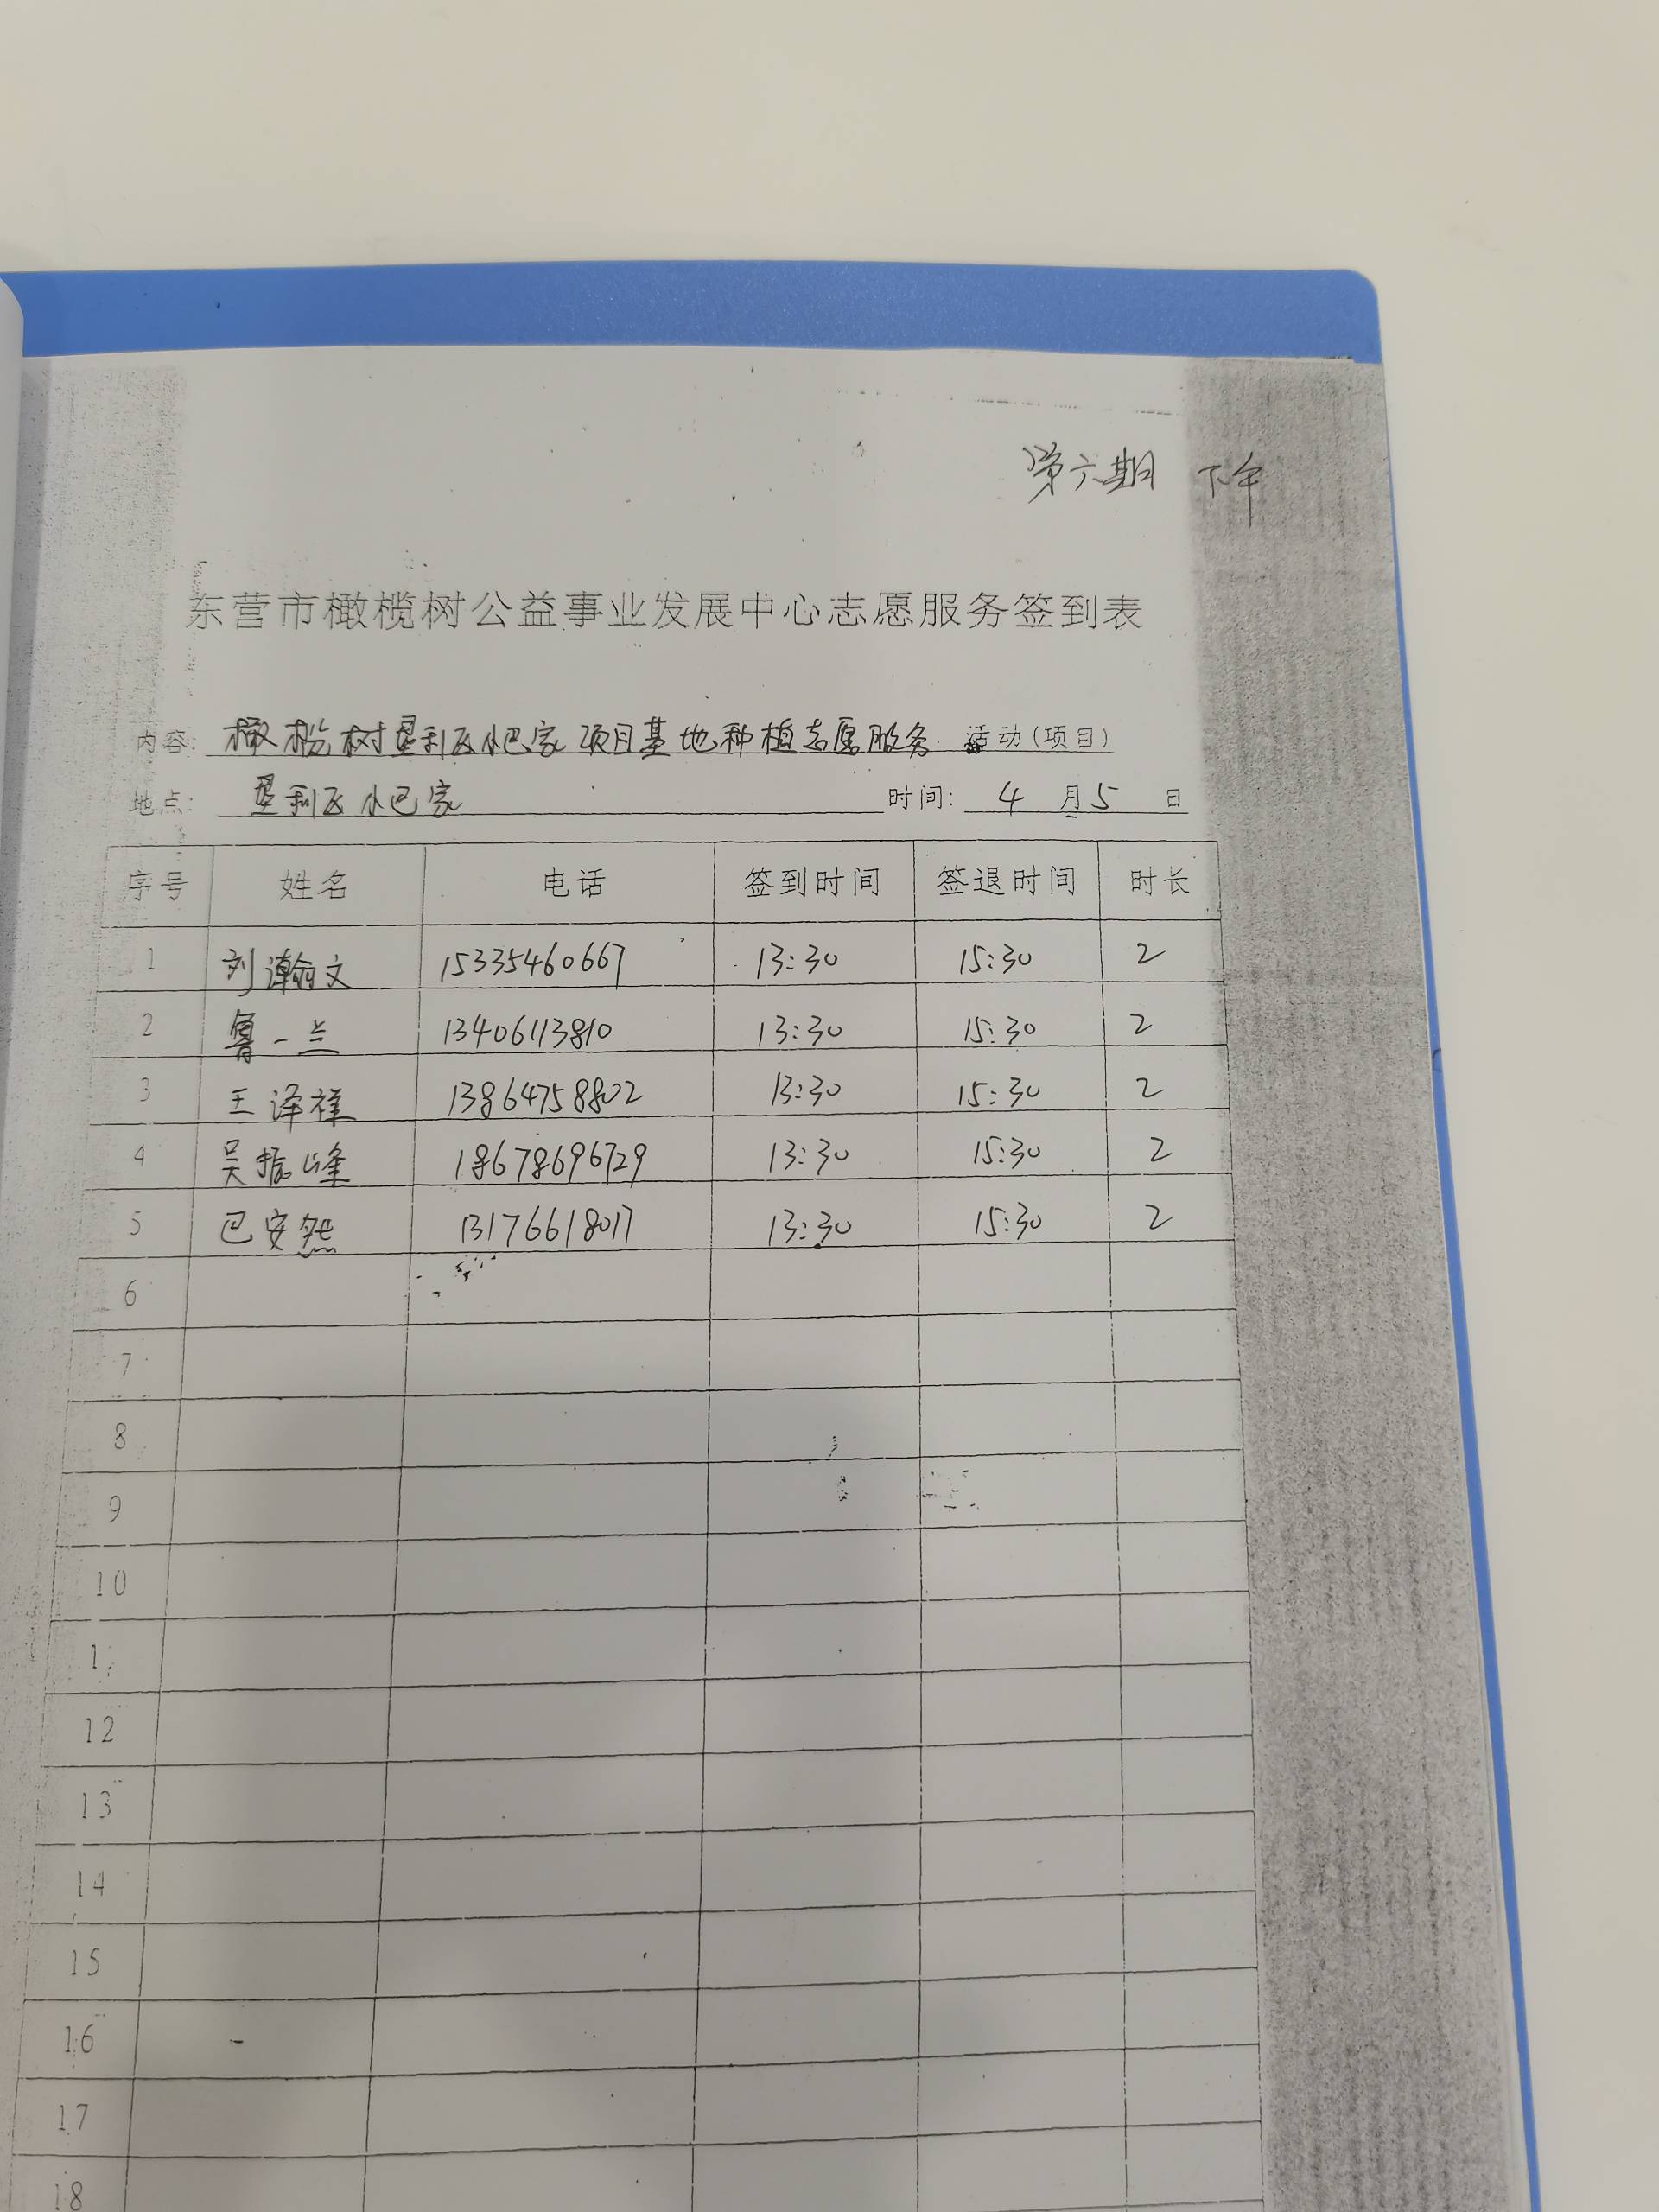 第六期 下午
东营市橄榄树公益事业发展中心志愿服务签到表
内容: 橄榄树垦利区小巴家项目基地种植志愿服务 活动(项目)
地点: 垦利区小巴家 时间: 4 月 5 日
序号 姓名 电话 签到时间 签退时间 时长
1 刘瀚文 15335460667 13:30 15:30 2
2 鲁一兰 13406113810 13:30 15:30 2
3 王泽祥 13864758802 13:30 15:30 2
4 吴振峰 18678696729 13:30 15:30 2
5 巴安然 13176618017 13:30 15:30 2
6
7
8
9
10
1
12
13
14
15
16
17
18